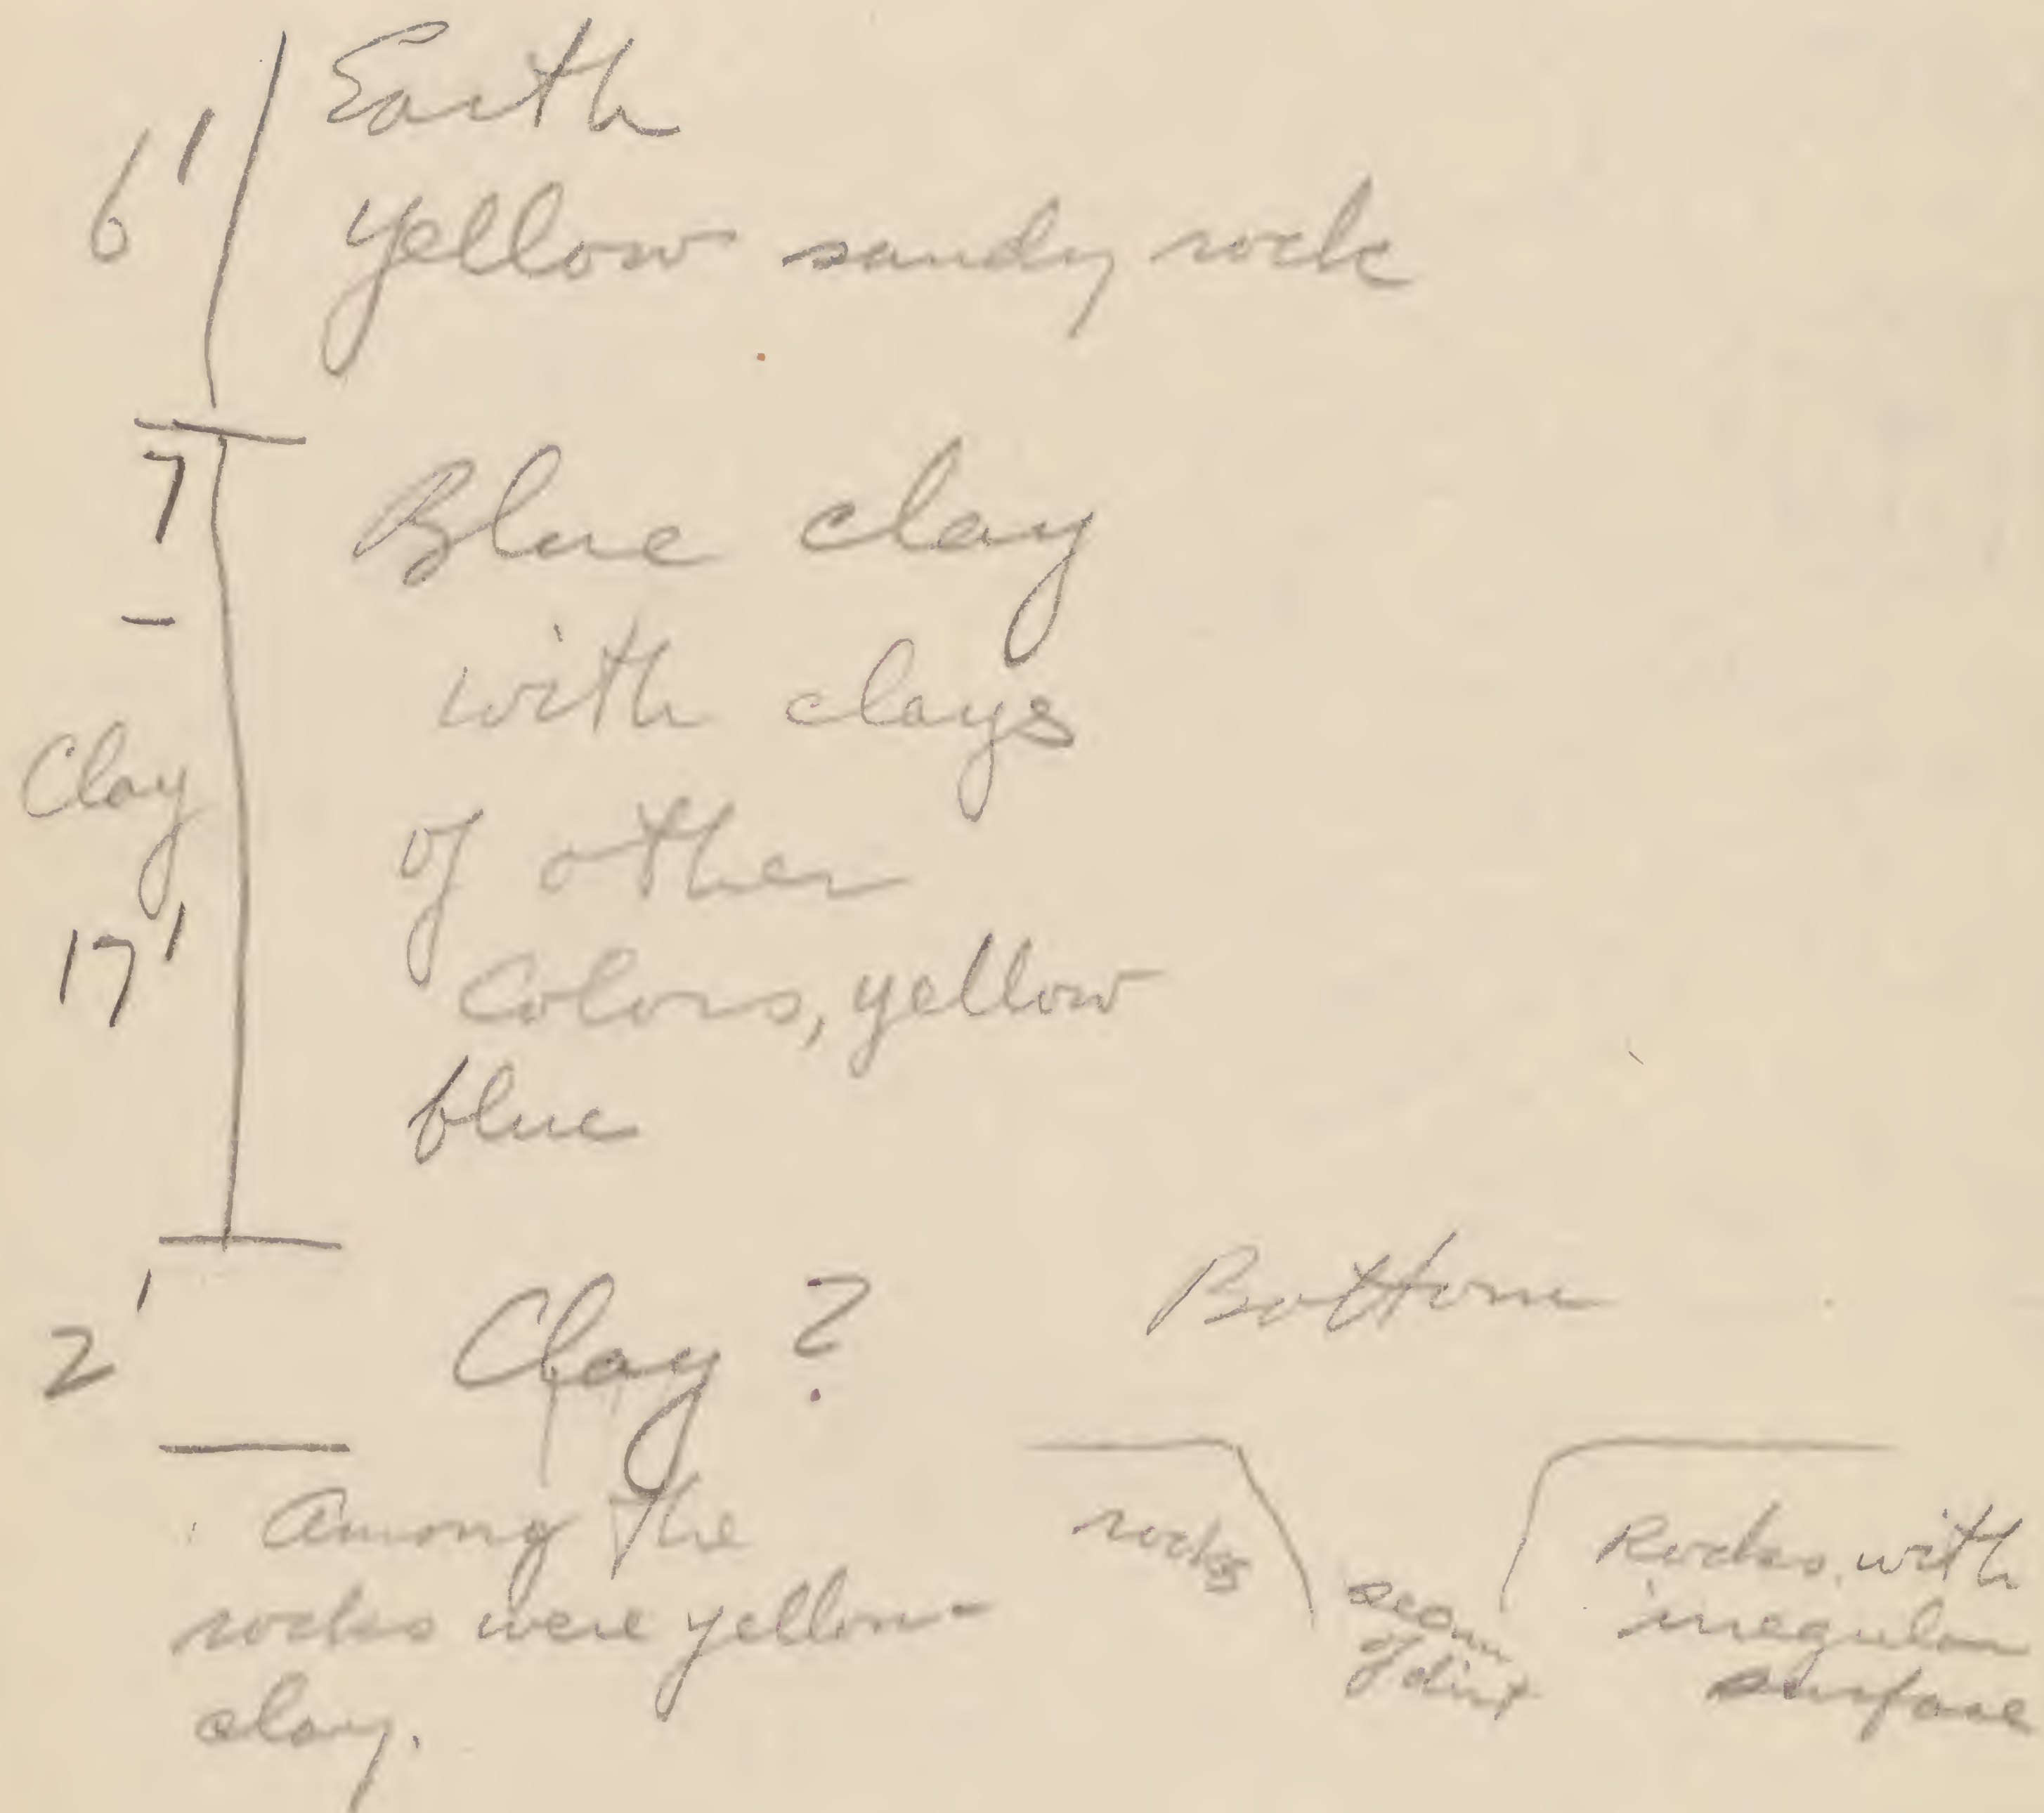 6' Earth
yellow sandy rock
7 Blue clay
– with clays
Clay of other
17' colors, yellow
blue
2' Clay ?
Among the
rocks were yellow
clay.
Bottom
rocks
seam
of dirt
Rocks with
irregular
surface